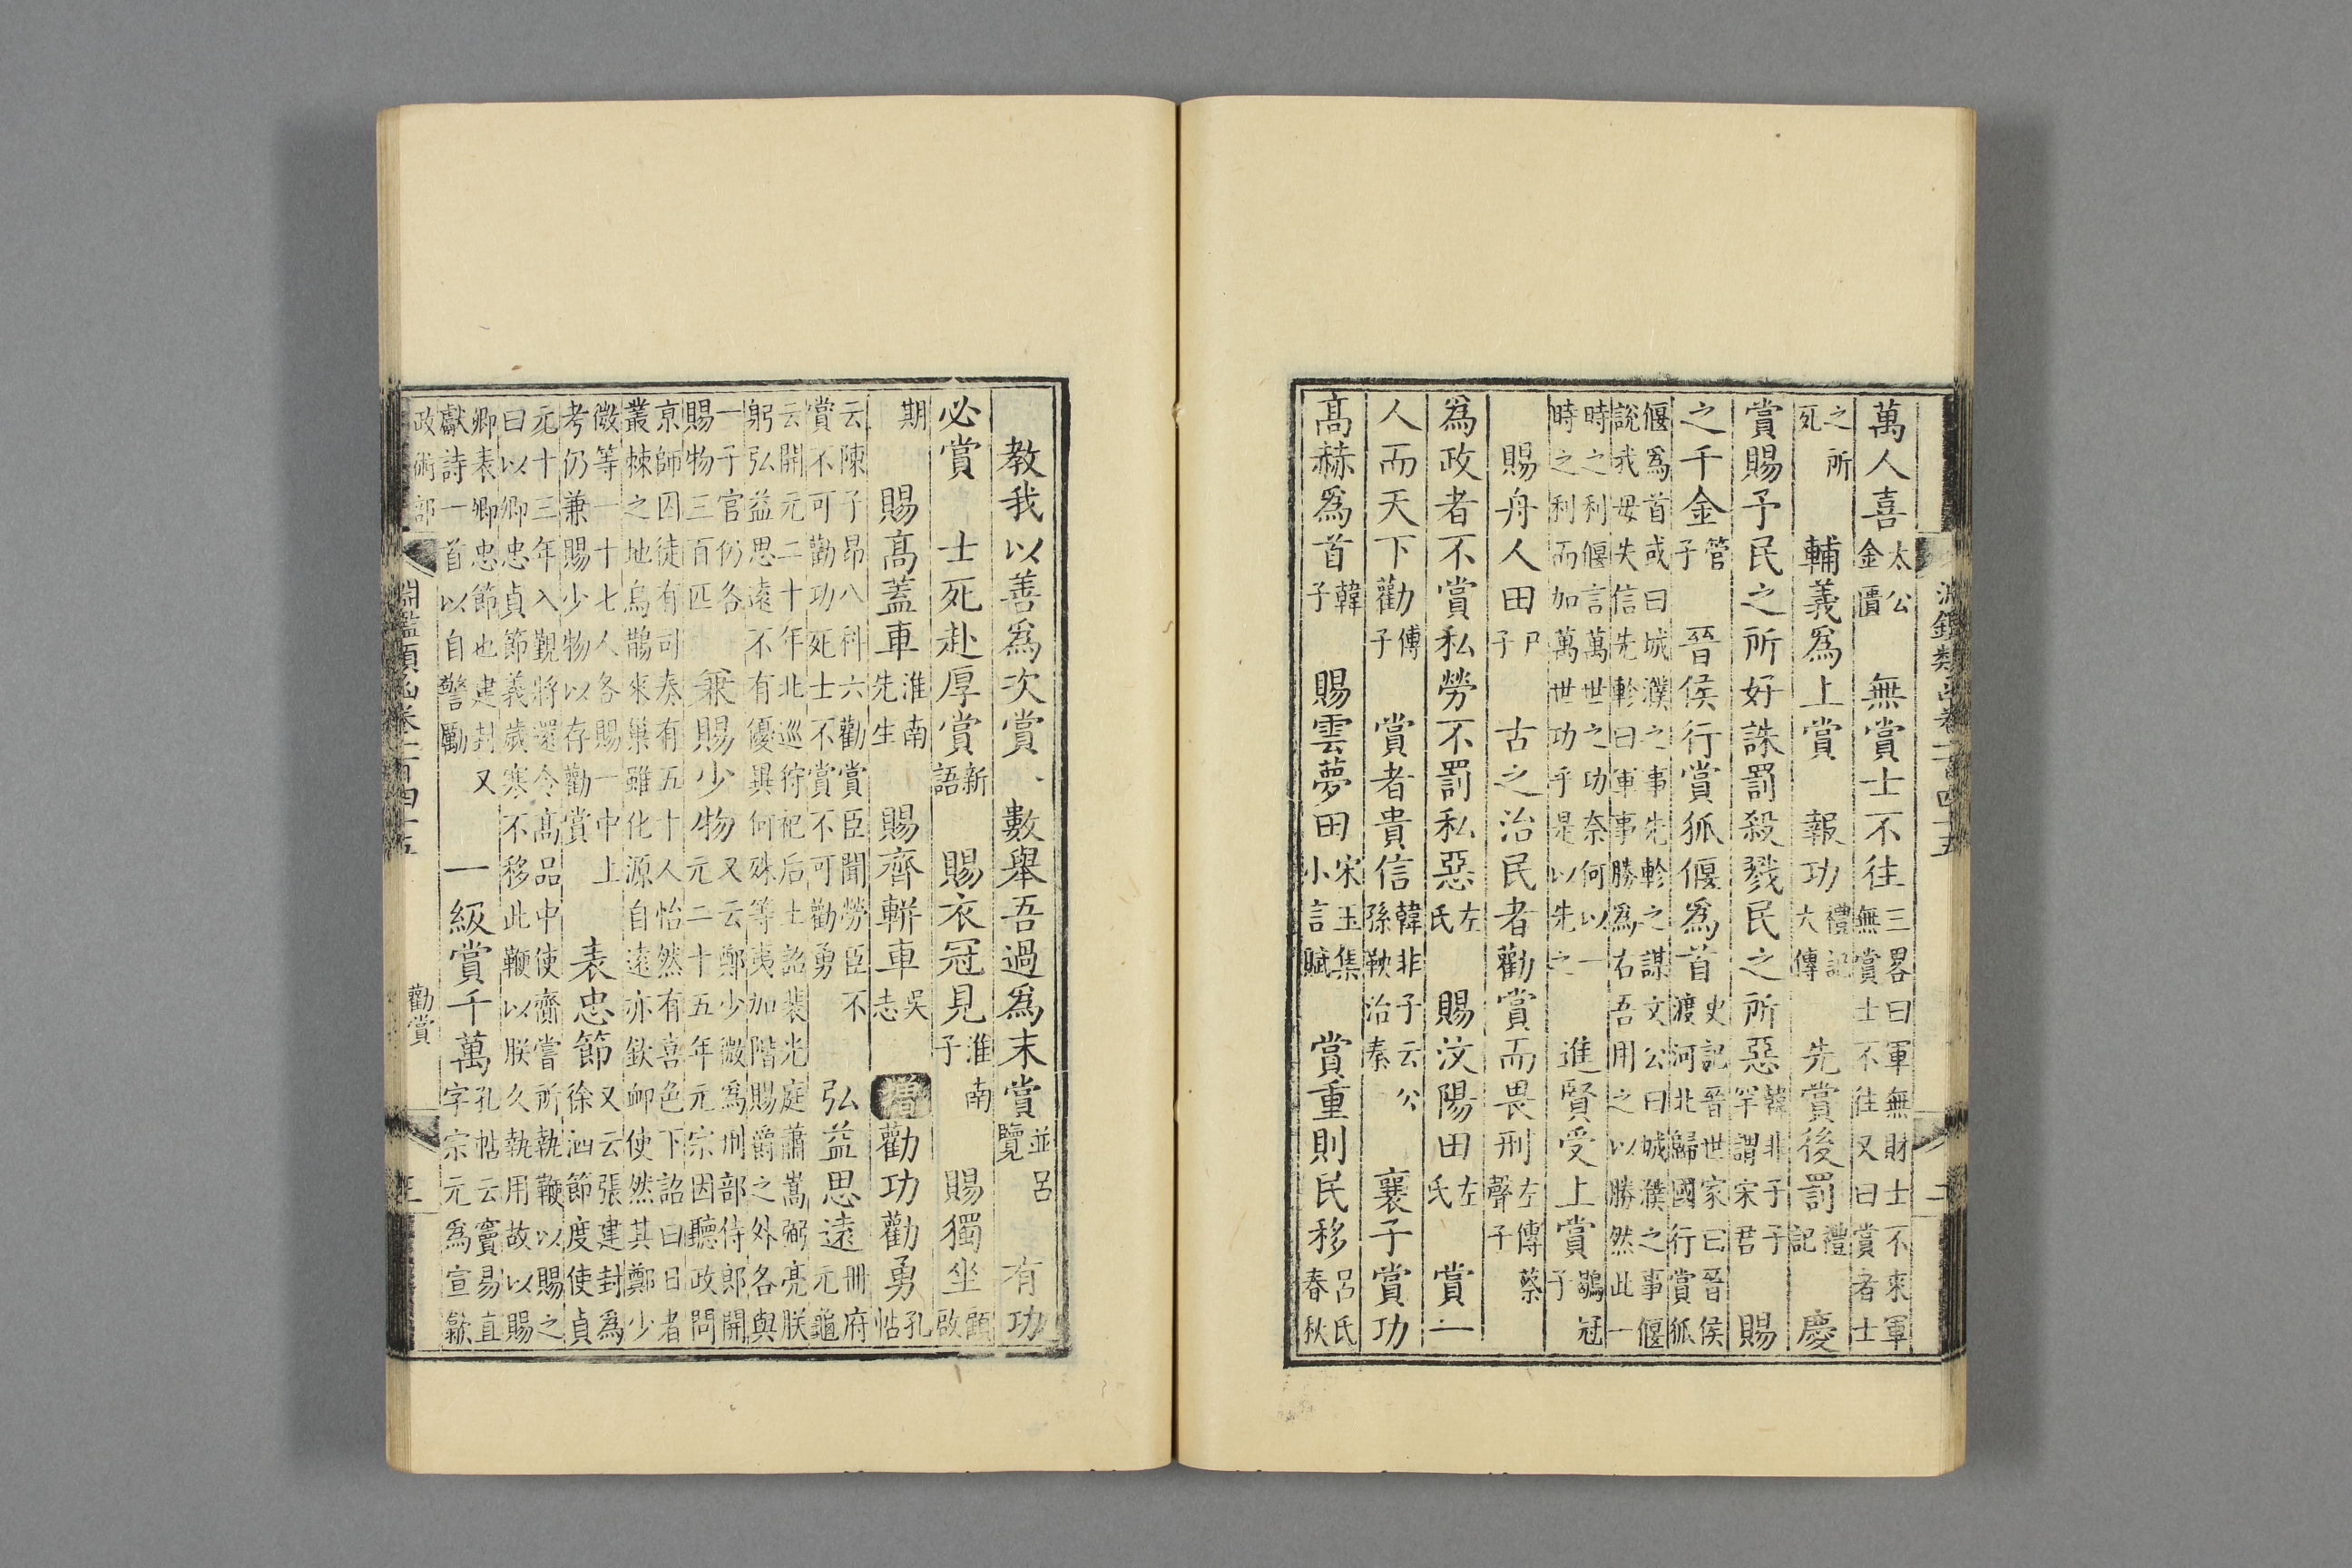 淵鑑類函卷一百四十五
二
萬人喜太公金匱 無賞士不往三畧曰軍無財士不來軍無賞士不往又曰賞者士
之所死 輔義爲上賞 報功禮記大傳 先賞後罰禮記 慶
賞賜予民之所好誅罰殺戮民之所惡韓非子子罕謂宋君 賜
之千金管子 晉侯行賞狐偃爲首史記晉世家曰晉侯渡河北歸國行賞狐
偃爲首或曰城濮之事先軫之謀文公曰城濮之事偃說我毋失信先軫曰軍事勝爲右吾用之以勝然此一
時之利偃言萬世之功奈何以一時之利而加萬世功乎是以先之 進賢受上賞鶡冠子
賜舟人田尸子 古之治民者勸賞而畏刑左傳蔡聲子
爲政者不賞私勞不罰私惡左氏 賜汶陽田左氏 賞一
人而天下勸傅子 賞者貴信韓非子云公孫鞅治秦 襄子賞功
高赫爲首韓子 賜雲夢田宋玉集小言賦 賞重則民移呂氏春秋
教我以善爲次賞 數舉吾過爲末賞並呂覽 有功
必賞 士死赴厚賞新語 賜衣冠見淮南子 賜獨坐顧啟
期 賜高蓋車淮南先生 賜齊軿車吳志 增勸功勸勇孔帖
云陳子昂八科六勸賞臣聞勞臣不賞不可勸功死士不賞不可勸勇 弘益思遠冊府元龜
云開元二十年北巡狩祀后土詔裴光庭蕭嵩弼亮朕躬弘益思遠不有優異何殊等夷加階賜爵之外各與
一子官仍各賜物三百匹 兼賜少物又云鄭少微爲刑部侍郎開元二十五年元宗因聽政問
京師囚徒有司奏有五十人怡然有喜色下詔曰日者叢棘之地烏鵲來巢雖化源自遠亦欽卹使然其鄭少
微等一十七人各賜一中上考仍兼賜少物以存勸賞 表忠節又云張建封爲徐泗節度使貞
元十三年入覲將還令高品中使齎嘗所執鞭以賜之曰以卿忠貞節義歲寒不移此鞭以朕久執用故以賜
卿表卿忠節也建封又獻詩一首以自警勵 一級賞千萬孔帖云竇易直字宗元爲宣歙
政術部
淵鑑類函卷一百四十五
勸賞
三